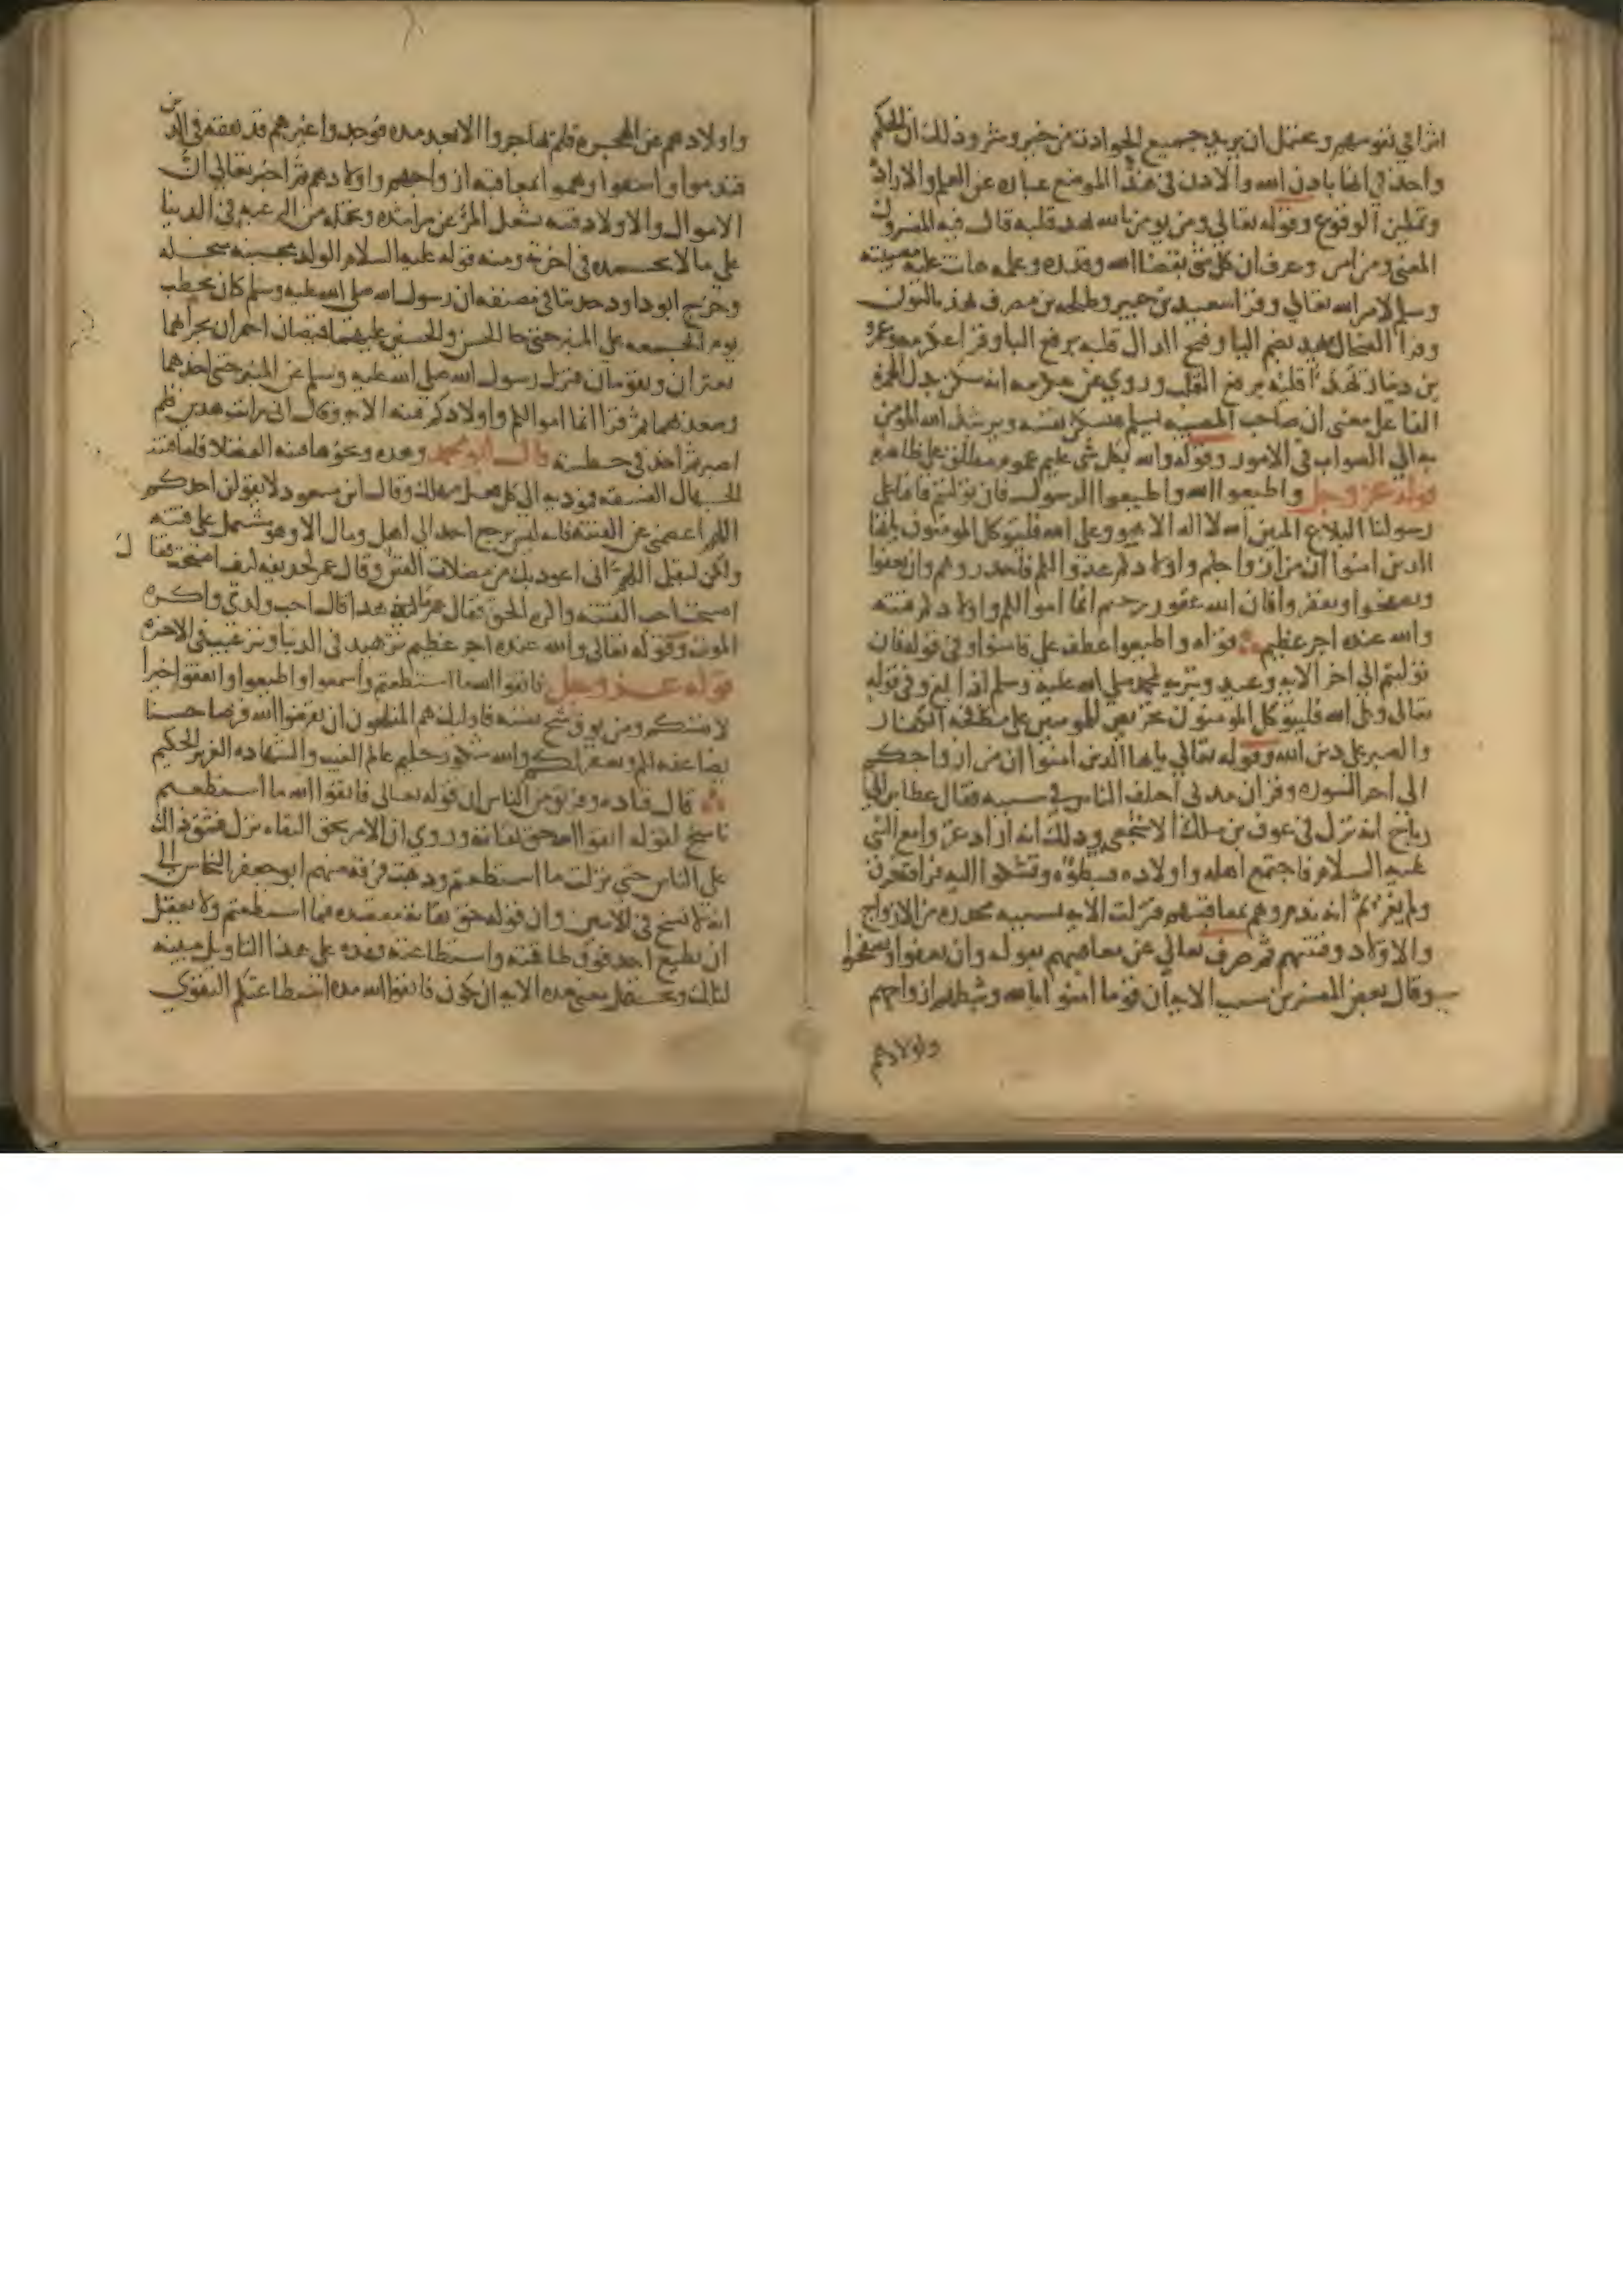 اثرا في نفوسهم ويحتمل ان يريد جميع الحوادث من خير وشر وذلك ان الحكم
واحد في انها باذن الله والاذن في هذا الموضع عباره عن العلم والاراده
وتمكين الوقوع وقوله تعالى ومن يومن بالله يهد قلبه قال فيه المفسرون
المعنى ومن امن وعرف ان كل شي بقضا الله وقدره وعلمه هانت عليه مصيبته
وسلم لامر الله تعالى وقرا سعيد بن جبير وطلحه بن مصرف نهد بالنون
وقرا الضحاك يهد بضم اليا وفتح الدال قلبه برفع البا وقرا عكرمه وعمرو
بن دينار يهدا قلبه برفع القلب وروي عن عكرمه انه سكن بدل الهمزه
الفا على معنى ان صاحب المصيبه يسلم فتسكن نفسه ويرشد الله المومن
به الى الصواب في الامور وقوله والله بكل شي عليم عموم مطلق على ظاهره
قوله عز وجل واطيعوا الله واطيعوا الرسول فان توليتم فانما على
رسولنا البلاغ المبين الله لا اله الا هو وعلى الله فليتوكل المومنون يايها
الذين امنوا ان من ازواجكم واولادكم عدوا لكم فاحذروهم وان تعفوا
وتصفحوا وتغفروا فان الله غفور رحيم انما اموالكم واولادكم فتنه
والله عنده اجر عظيم قوله واطيعوا عطف على فامنوا وفي قوله فان
توليتم الى اخر الايه وعيد وتبريه لمحمد صلى الله عليه وسلم اذا بلغ وفي قوله
تعالى وعلى الله فليتوكل المومنون تحريض للمومنين على مكافحه الكفار
والصبر على دين الله وقوله تعالى يايها الذين امنوا ان من ازواجكم
الى اخر السوره وقران مدني اختلف الناس في سببه فقال عطا بن ابي
رباح انه نزل في عوف بن مالك الاشجعي وذلك انه اراد غزوا مع النبي
عليه السلام فاجتمع اهله واولاده فثبطوه وتشكوا اليه فراقه فرق
ولم يغز ثم انه ندم وهم بمعاقبتهم فنزلت الايه بسببه محذره من الازواج
والاولاد وفتنتهم ثم صرف تعالى عن معاقبتهم بقوله وان تعفوا وتصفحوا
وقال بعض المفسرين سبب الايه ان قوما امنوا بالله وثبطهم ازواجهم
واولادهم
واولادهم عن الهجره فلم يهاجروا الا بعد مده فوجدوا غيرهم قد تفقه في الدين
فندموا واسفوا وهموا بمعاقبه ازواجهم واولادهم ثم اخبر تعالى ان
الاموال والاولاد فتنه تشغل المرء عن مراشده وتحمله من الرغبه في الدنيا
على ما لا يحمده في اخرته ومنه قوله عليه السلام الولد مجبنه مبخله
وخرج ابو داود حديثا في مصنفه ان رسول الله صلى الله عليه وسلم كان يخطب
يوم الجمعه على المنبر حتى جا الحسن والحسين عليهما قميصان احمران يجرانهما
يعثران ويقومان فنزل رسول الله صلى الله عليه وسلم عن المنبر حتى اخذهما
وصعد بهما ثم قرا انما اموالكم واولادكم فتنه الايه وقال اني رايت هذين فلم
اصبر ثم اخذ في خطبته قال ابو محمد وهذه ونحوها فتنه الفضلا فاما فتنه
الجهال الفسقه فموديه الى كل فعل مهلك وقال ابن مسعود لا يقولن احدكم
اللهم اعصمني عن الفتنه فانه ليس يرجع احد الى اهل ومال الا وهو مشتمل على فتنه
ولكن ليقل اللهم اني اعوذ بك من مضلات الفتن وقال عمر لحذيفه كيف اصبحت فقال
اصبحت احب الفتنه واكره الحق فقال عمر ما هذا فقال احب ولدي واكره
الموت وقوله تعالى والله عنده اجر عظيم تزهيد في الدنيا وترغيب في الاخره
قوله عز وجل فاتقوا الله ما استطعتم واسمعوا واطيعوا وانفقوا خيرا
لانفسكم ومن يوق شح نفسه فاوليك هم المفلحون ان تقرضوا الله قرضا حسنا
يضاعفه لكم ويغفر لكم والله شكور حليم عالم الغيب والشهاده العزيز الحكيم
قال قتاده وفريق من الناس ان قوله تعالى فاتقوا الله ما استطعتم
ناسخ لقوله اتقوا الله حق تقاته وروي ان الامر بحق التقاه نزل فشق ذلك
على الناس حتى نزلت ما استطعتم وذهبت فرقه منهم ابو جعفر النحاس الى
انه لا نسخ في الايتين وان قوله حق تقاته مقصده فيما استطعتم ولا يعقل
ان يطيع احد فوق طاقته واستطاعته فهذه على هذا التاويل مبينه
لتلك ويحتمل معنى هذه الايه ان يكون فاتقوا الله مده استطاعتكم التقوى